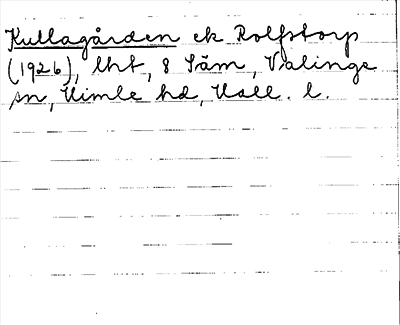 Kullagården ek Rolfstorp
(1926), lht, 8 Säm, Valinge
sn, Himle hd, Hall. l.